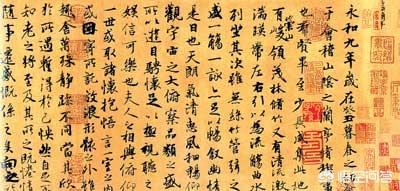 永和九年歲在癸丑暮春之
于會稽山陰之蘭亭脩稧事
也群賢畢至少長咸集此地
有崇山峻領茂林脩竹又有清流激
湍暎帶左右引以為流觴曲水
列坐其次雖無絲竹管弦之
盛一觴一詠亦足以暢敘幽情
是日也天朗氣清惠風和暢仰
觀宇宙之大俯察品類之盛
所以遊目騁懷足以極視聽之
娛信可樂也夫人之相與俯仰
一世或取諸懷抱悟言一室之
或因寄所託放浪形骸之外雖
趣舍萬殊靜躁不同當其欣
於所遇蹔得於己怏然自足不
知老之將至及其所之既惓情
隨事遷感慨係之矣向之
悟空问答